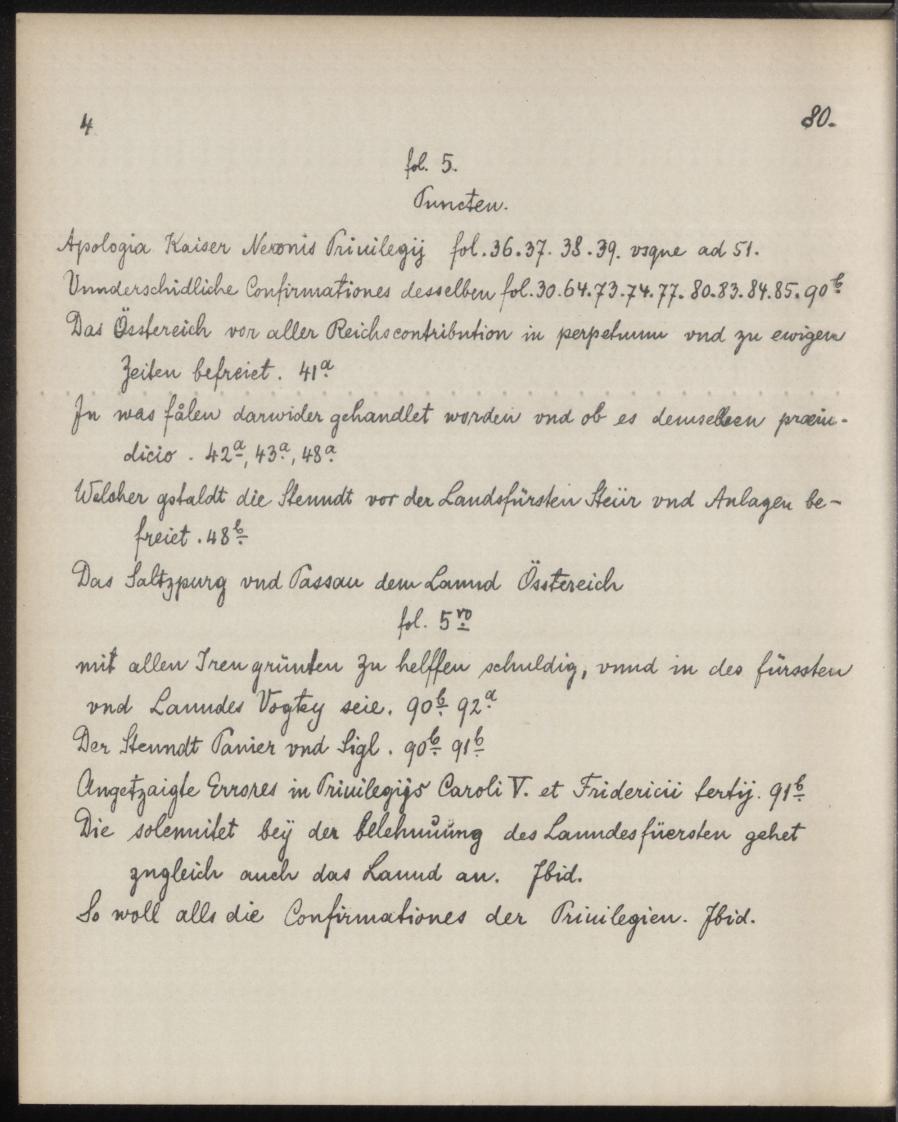 4 80.
fol. 5.
Puncten.
Apologia Kaiser Neronis Priuilegij fol. 36. 37. 38. 39. vsque ad 51.
Vnnderschidliche Confirmationes desselben fol. 30. 64. 73. 74. 77. 80. 83. 84. 85. 90b
Das Össtereich vor aller Reichscontribution in perpetuum vnd zu ewigen
Zeiten befreiet. 41a
In was fålen darwider gehandlet worden vnd ob es demselben præiu-
dicio. 42a, 43a, 48a
Welcher gstaldt die Stenndt vor der Landsfürsten Steür vnd Anlagen be-
freiet. 48b
Das Saltzpurg vnd Passau dem Lannd Össtereich
fol. 5vo
mit allen Iren grünten zu helffen schuldig, vnnd in des fürssten
vnd Lanndes Vogtey seie. 90b 92a
Der Stenndt Panier vnd Sigl. 90b 91b
Angetzaigte Errores in Priuilegijs Caroli V. et Fridericii tertij. 91b
Die solennitet beÿ der belehnuung des Lanndesfüersten gehet
zugleich auch das Lannd an. Ibid.
So woll alls die Confirmationes der Priuilegien. Ibid.